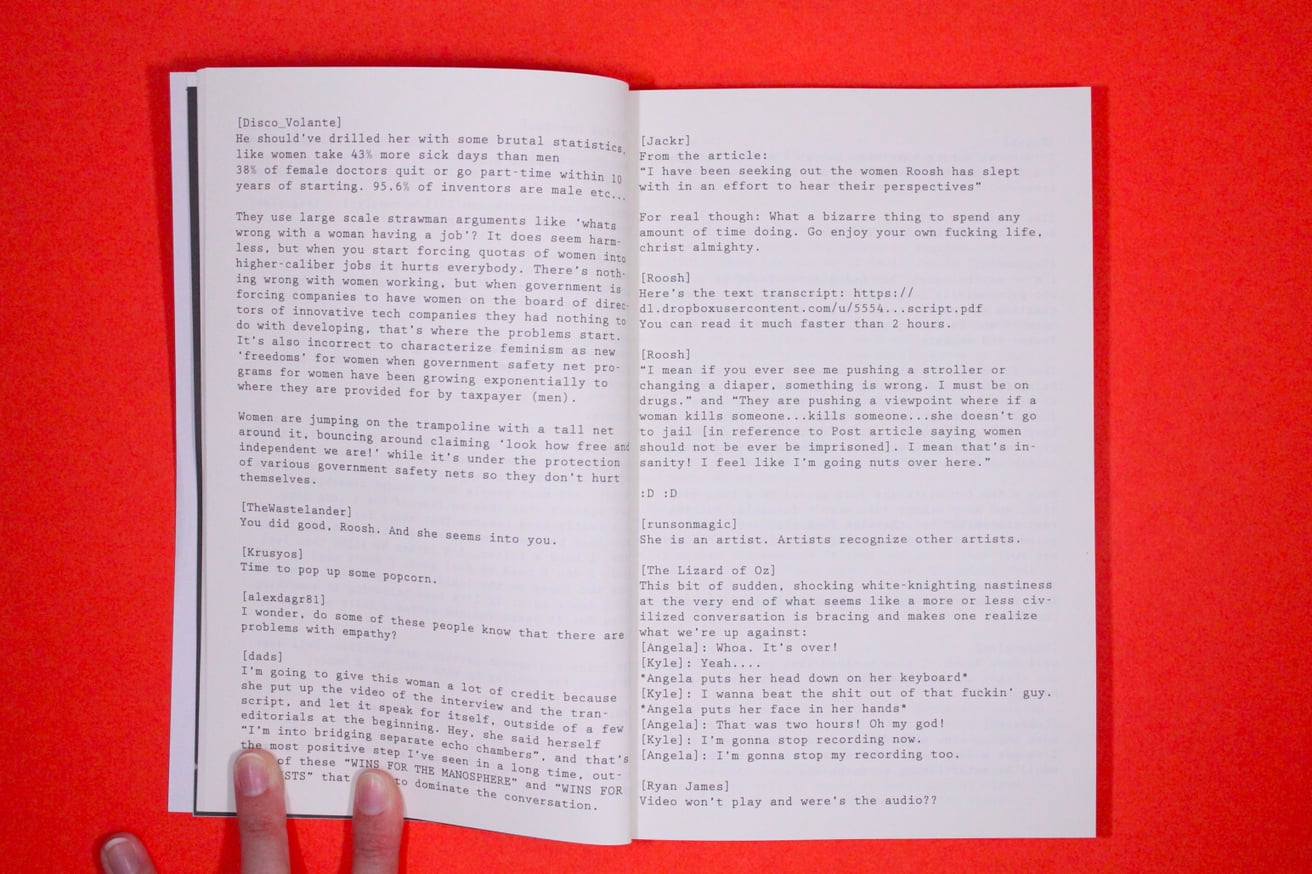 [Disco_Volante]
He should've drilled her with some brutal statistics,
like women take 43% more sick days than men
38% of female doctors quit or go part-time within 10
years of starting. 95.6% of inventors are male etc...
They use large scale strawman arguments like ‘whats
wrong with a woman having a job’? It does seem harm-
less, but when you start forcing quotas of women into
higher-caliber jobs it hurts everybody. There's noth-
ing wrong with women working, but when government is
forcing companies to have women on the board of direc-
tors of innovative tech companies they had nothing to
do with developing, that's where the problems start.
It's also incorrect to characterize feminism as new
‘freedoms’ for women when government safety net pro-
grams for women have been growing exponentially to
where they are provided for by taxpayer (men).
Women are jumping on the trampoline with a tall net
around it, bouncing around claiming ‘look how free and
independent we are!’ while it's under the protection
of various government safety nets so they don't hurt
themselves.
[TheWastelander]
You did good, Roosh. And she seems into you.
[Krusyos]
Time to pop up some popcorn.
[alexdagr81]
I wonder, do some of these people know that there are
problems with empathy?
[dads]
I'm going to give this woman a lot of credit because
she put up the video of the interview and the tran-
script, and let it speak for itself, outside of a few
editorials at the beginning. Hey, she said herself
“I'm into bridging separate echo chambers”, and that's
the most positive step I've seen in a long time, out-
of these “WINS FOR THE MANOSPHERE” and “WINS FOR
ISTS” that to dominate the conversation.
[Jackr]
From the article:
“I have been seeking out the women Roosh has slept
with in an effort to hear their perspectives”
For real though: What a bizarre thing to spend any
amount of time doing. Go enjoy your own fucking life,
christ almighty.
[Roosh]
Here's the text transcript: https://
dl.dropboxusercontent.com/u/5554...script.pdf
You can read it much faster than 2 hours.
[Roosh]
“I mean if you ever see me pushing a stroller or
changing a diaper, something is wrong. I must be on
drugs.” and “They are pushing a viewpoint where if a
woman kills someone...kills someone...she doesn't go
to jail [in reference to Post article saying women
should not be ever be imprisoned]. I mean that's in-
sanity! I feel like I'm going nuts over here.”
:D :D
[runsonmagic]
She is an artist. Artists recognize other artists.
[The Lizard of Oz]
This bit of sudden, shocking white-knighting nastiness
at the very end of what seems like a more or less civ-
ilized conversation is bracing and makes one realize
what we're up against:
[Angela]: Whoa. It's over!
[Kyle]: Yeah....
*Angela puts her head down on her keyboard*
[Kyle]: I wanna beat the shit out of that fuckin' guy.
*Angela puts her face in her hands*
[Angela]: That was two hours! Oh my god!
[Kyle]: I'm gonna stop recording now.
[Angela]: I'm gonna stop my recording too.
[Ryan James]
Video won't play and were's the audio??